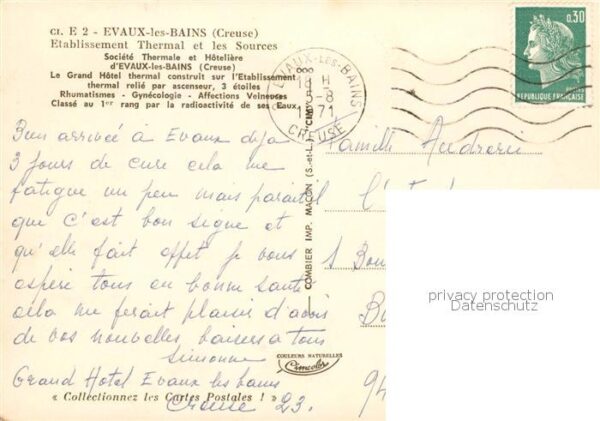 CI. E 2 - EVAUX-les-BAINS (Creuse)
Etablissement Thermal et les Sources
Société Thermale et Hôtelière
d'EVAUX-les-BAINS (Creuse)
Le Grand Hôtel thermal construit sur l'Etablissement
thermal relié par ascenseur, 3 étoiles
Rhumatismes - Gynécologie - Affections Veineuses
Classé au 1er rang par la radioactivité de ses Eaux
Bien arrivée à Evaux deja
3 jours de cure cela me
fatigue un peu mais parait il
que c'est bon signe et
qu'elle fait effet je vous
espère tous en bonne santé
cela me ferait plaisir d'avoir
de vos nouvelles baisers a tous
Simonne
Grand Hotel Evaux les bains
Creuse 23.
« Collectionnez les Cartes Postales ! »
COMBIER IMP. MACON (S.-et-L.)
COULEURS NATURELLES
Cimcolor
EVAUX-LES-BAINS
18 H
8
1971
CREUSE
0,30
REPUBLIQUE FRANÇAISE
Famille
1
94
privacy protection
Datenschutz